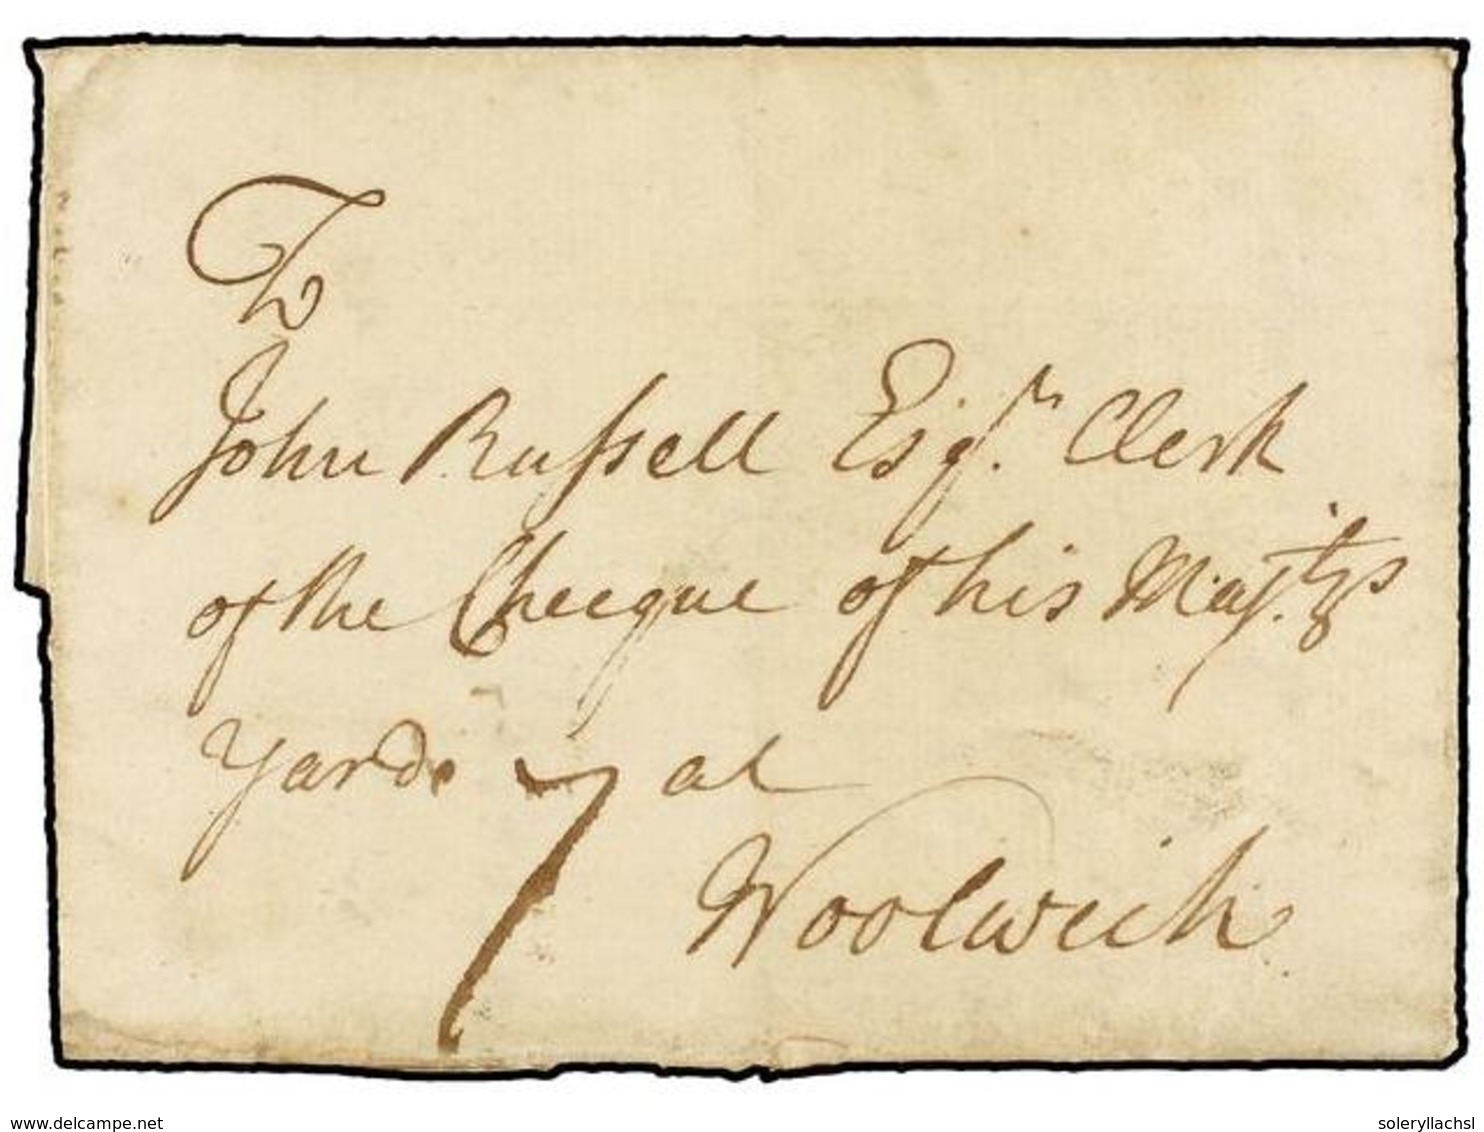 To
John Russell Esqr. Clerk
of the Checque of his Maj.tys
Yard 7 at
Woolwich
delcampe.net
soleryllachsl